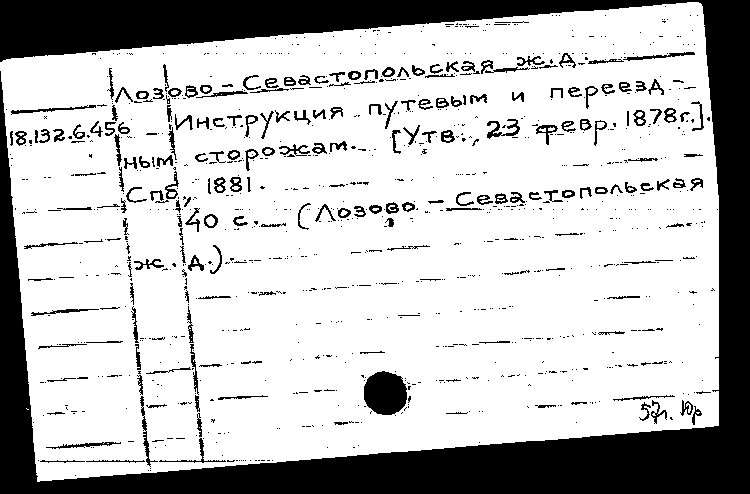 Лозово-Севастопольская ж.д.
18.132.6.456 Инструкция путевым и переезд-
ным сторожам. [Утв. 23 февр. 1878г.].
Спб, 1881.
40 с. (Лозово-Севастопольская
ж.д.).